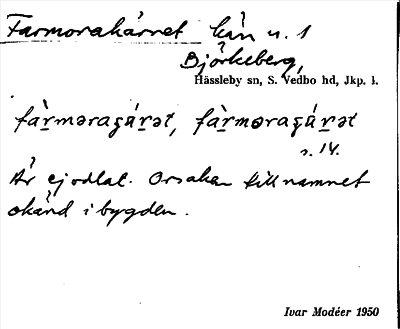 Farmorakärret kän n. 1
Björkeberg,
Hässleby sn, S. Vedbo hd, Jkp. l.
fàr̲məraʂár̲ət, fàr̲moraʂár̲ət
s. 14.
Är ej odlat. Orsaken till namnet
okänd i bygden.
Ivar Modéer 1950